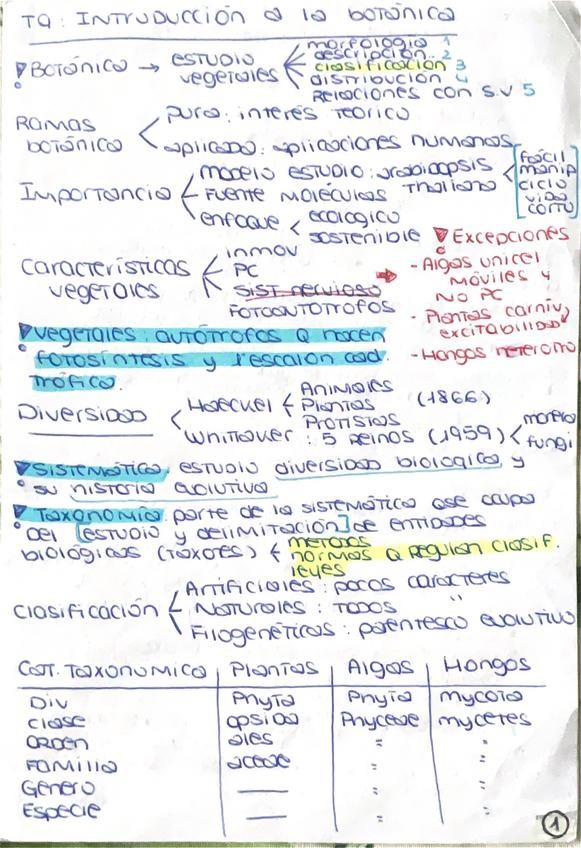 TQ: INTRODUCCIÓN a la botánica
Botánica → estudio vegetales
morfología 1
descripción 2
clasificación 3
distribución 4
Relaciones con S.V 5
Ramas botánica
pura: interés teórico
aplicada: aplicaciones humanas
Importancia
modelo estudio: arabidopsis thaliana
fácil manip
ciclo vida corto
Fuente moléculas
enfoque
ecologico
sostenible
Características vegetales
inmov
PC
sist nervioso
Fotoautótrofos
Excepciones
- Algas unicel móviles y no PC
- Plantas carniv excitabilidad
- Hongos heterotro
Vegetales: autótrofos q hacen
fotosíntesis y 1ºescalón cad.
trófica.
Diversidad
Haeckel
Animales
Plantas (1866)
Protistas
Whittaker: 5 Reinos (1959)
monera
fungi
Sistemática: estudio diversidad biologica y
su historia evolutiva
Taxonomía: parte de la sistemática que se ocupa
del [estudio y delimitación] de entidades
biológicas (taxones)
metodos
normas q regulan clasif.
leyes
Clasificación
Artificiales: pocos caracteres
Naturales: todos "
Filogenéticas: parentesco evolutivo
Cat. Taxonomico | Plantas | Algas | Hongos
Div | Phyta | Phyta | mycota
clase | opsida | Phyceae | mycetes
Orden | ales | " | "
Familia | aceae | " | "
Genero | — | " | "
Especie | — | " | "
1